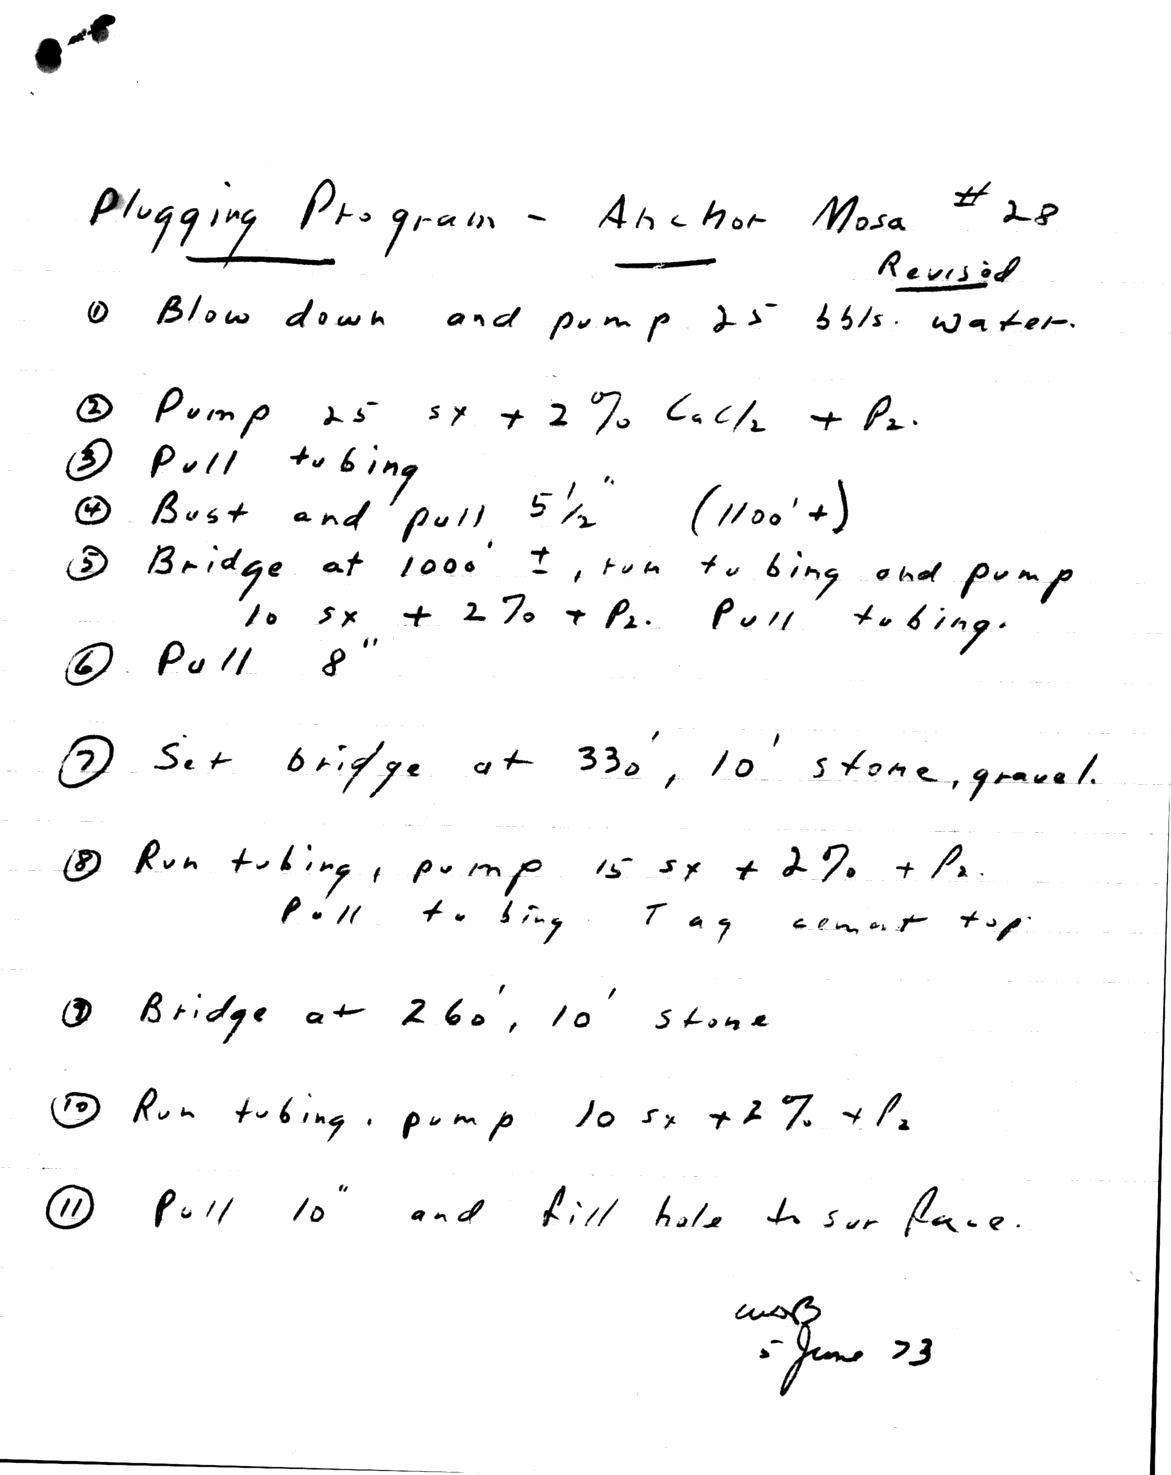 Plugging Program - Anchor Mosa #28
Revised
① Blow down and pump 25 bbls. water.
② Pump 25 sx + 2% CaCl₂ + P₂.
③ Pull tubing
④ Bust and pull 5½" (1100'+)
⑤ Bridge at 1000' ±, run tubing and pump
10 sx + 2% + P₂. Pull tubing.
⑥ Pull 8"
⑦ Set bridge at 330', 10' stone, gravel.
⑧ Run tubing, pump 15 sx + 2% + P₂.
Pull tubing. Tag cement top.
⑨ Bridge at 260', 10' stone
⑩ Run tubing. pump 10 sx + 2% + P₂
⑪ Pull 10" and fill hole to surface.
5 June 73